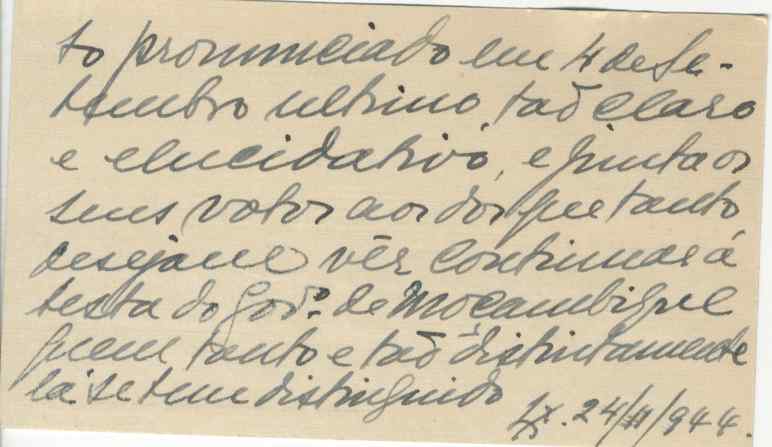 to pronunciado em 4 de Se-
tembro ultimo, tão claro
e elucidativo, e junta os
seus votos aos dos que tanto
desejam vêr continuar á
testa do Govº. de Moçambique
quem tanto e tão distintamente
lá se tem distinguido
Lx. 24/II/944.